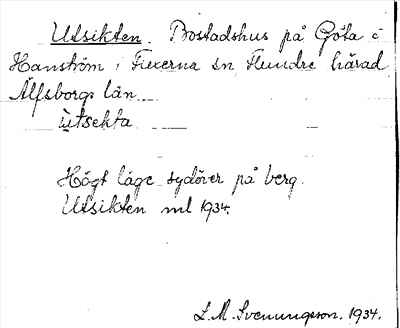 Utsikten. Bostadshus på Göta i
Hanström, Fuxerna sn Flundre härad
Älfsborgs län
ùtsekta
Högt läge sydöver på berg.
Utsikten ml 1934.
L.M. Svenungsson. 1934.